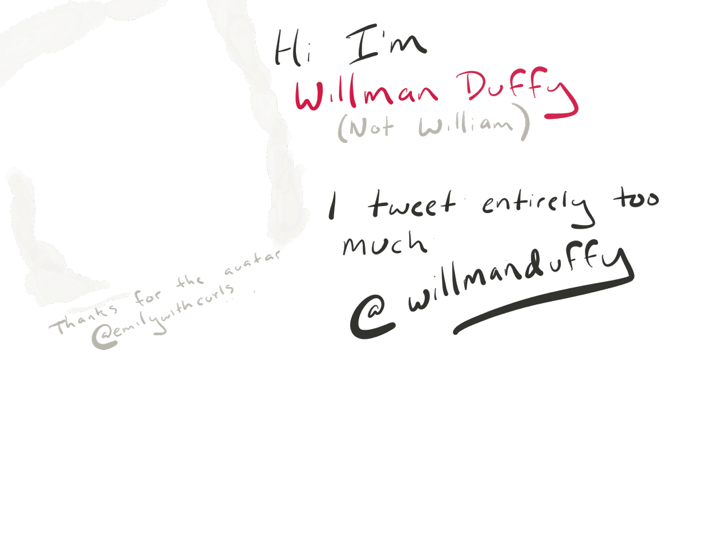 Hi I'm
Willman Duffy
(Not William)
I tweet entirely too
much
@willmanduffy
Thanks for the avatar
@emilywithcurls